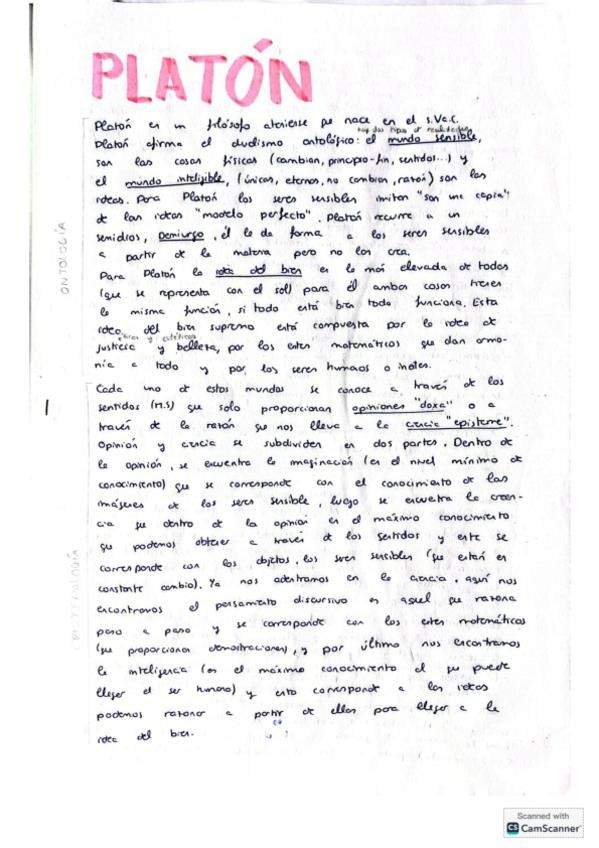 PLATÓN
Platón es un filósofo ateniense que nace en el s.V a.C.
hay dos tipos de realidades
Platón afirma el dualismo ontológico: el mundo sensible,
son las cosas físicas (cambian, principio-fin, sentidos...) y
el mundo inteligible, (únicas, eternas, no cambian, razón) son las
ideas. Para Platón los seres sensibles imitan "son una copia"
de las ideas "modelo perfecto". Platón recurre a un
semidios, Demiurgo, él le da forma a los seres sensibles
a partir de la materia pero no los crea.
Para Platón la idea del bien es la más elevada de todas
(que se representa con el sol) para él ambas cosas tienen
la misma función, si todo está bien todo funciona. Esta
idea del bien supremo está compuesta por la idea de
éticas y estéticas
justicia y belleza, por los entes matemáticos que dan armo-
nía a todo y por los seres humanos o
ONTOLOGÍA
Cada uno de estos mundos se conoce a través de los
sentidos (M.S) que solo proporcionan opiniones "doxa" o a
través de la razón que nos lleva a la ciencia "episteme".
Opinión y ciencia se subdividen en dos partes. Dentro de
la opinión, se encuentra la imaginación (es el nivel mínimo de
conocimiento) que se corresponde con el conocimiento de las
imágenes de los seres sensible, luego se encuetra la creen-
cia que dentro de la opinión es el máximo conocimiento
que podemos obtener a través de los sentidos y este se
corresponde con los objetos, los seres sensibles (que están en
constante cambio). Ya nos adentramos en la ciencia, aquí nos
encontramos el pensamiento discursivo es aquel que razona
paso a paso y se corresponde con los entes matemáticos
(que proporcionan demostraciones), y por último nos encontramos
la inteligencia (es el máximo conocimiento al que puede
llegar el ser humano) y esto corresponde a las ideas
podemos razonar a partir de ellas para llegar a la
idea del bien.
EPISTEMOLOGÍA
Scanned with
CS CamScanner